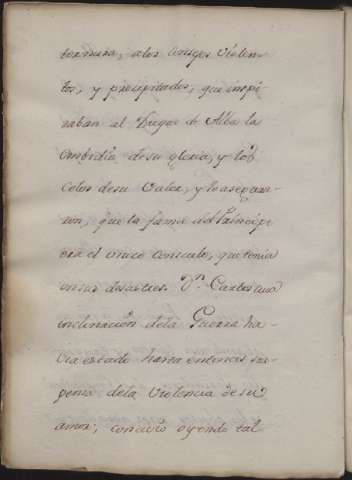 ternura, a los consejos violen-
tos, y precipitados, que inspi-
raban al Duque de Alba la
embidia de su gloria, y los
Celos de su Valor, y lo asegura-
ron, que la fama del Principe
era el unico consuelo, que tenia
en sus desastres. Dn. Carlos cuia
inclinacion de la Guerra ha-
via estado hasta entonces sus-
pensa de la Violencia de su
amor, concivió oyendo tal